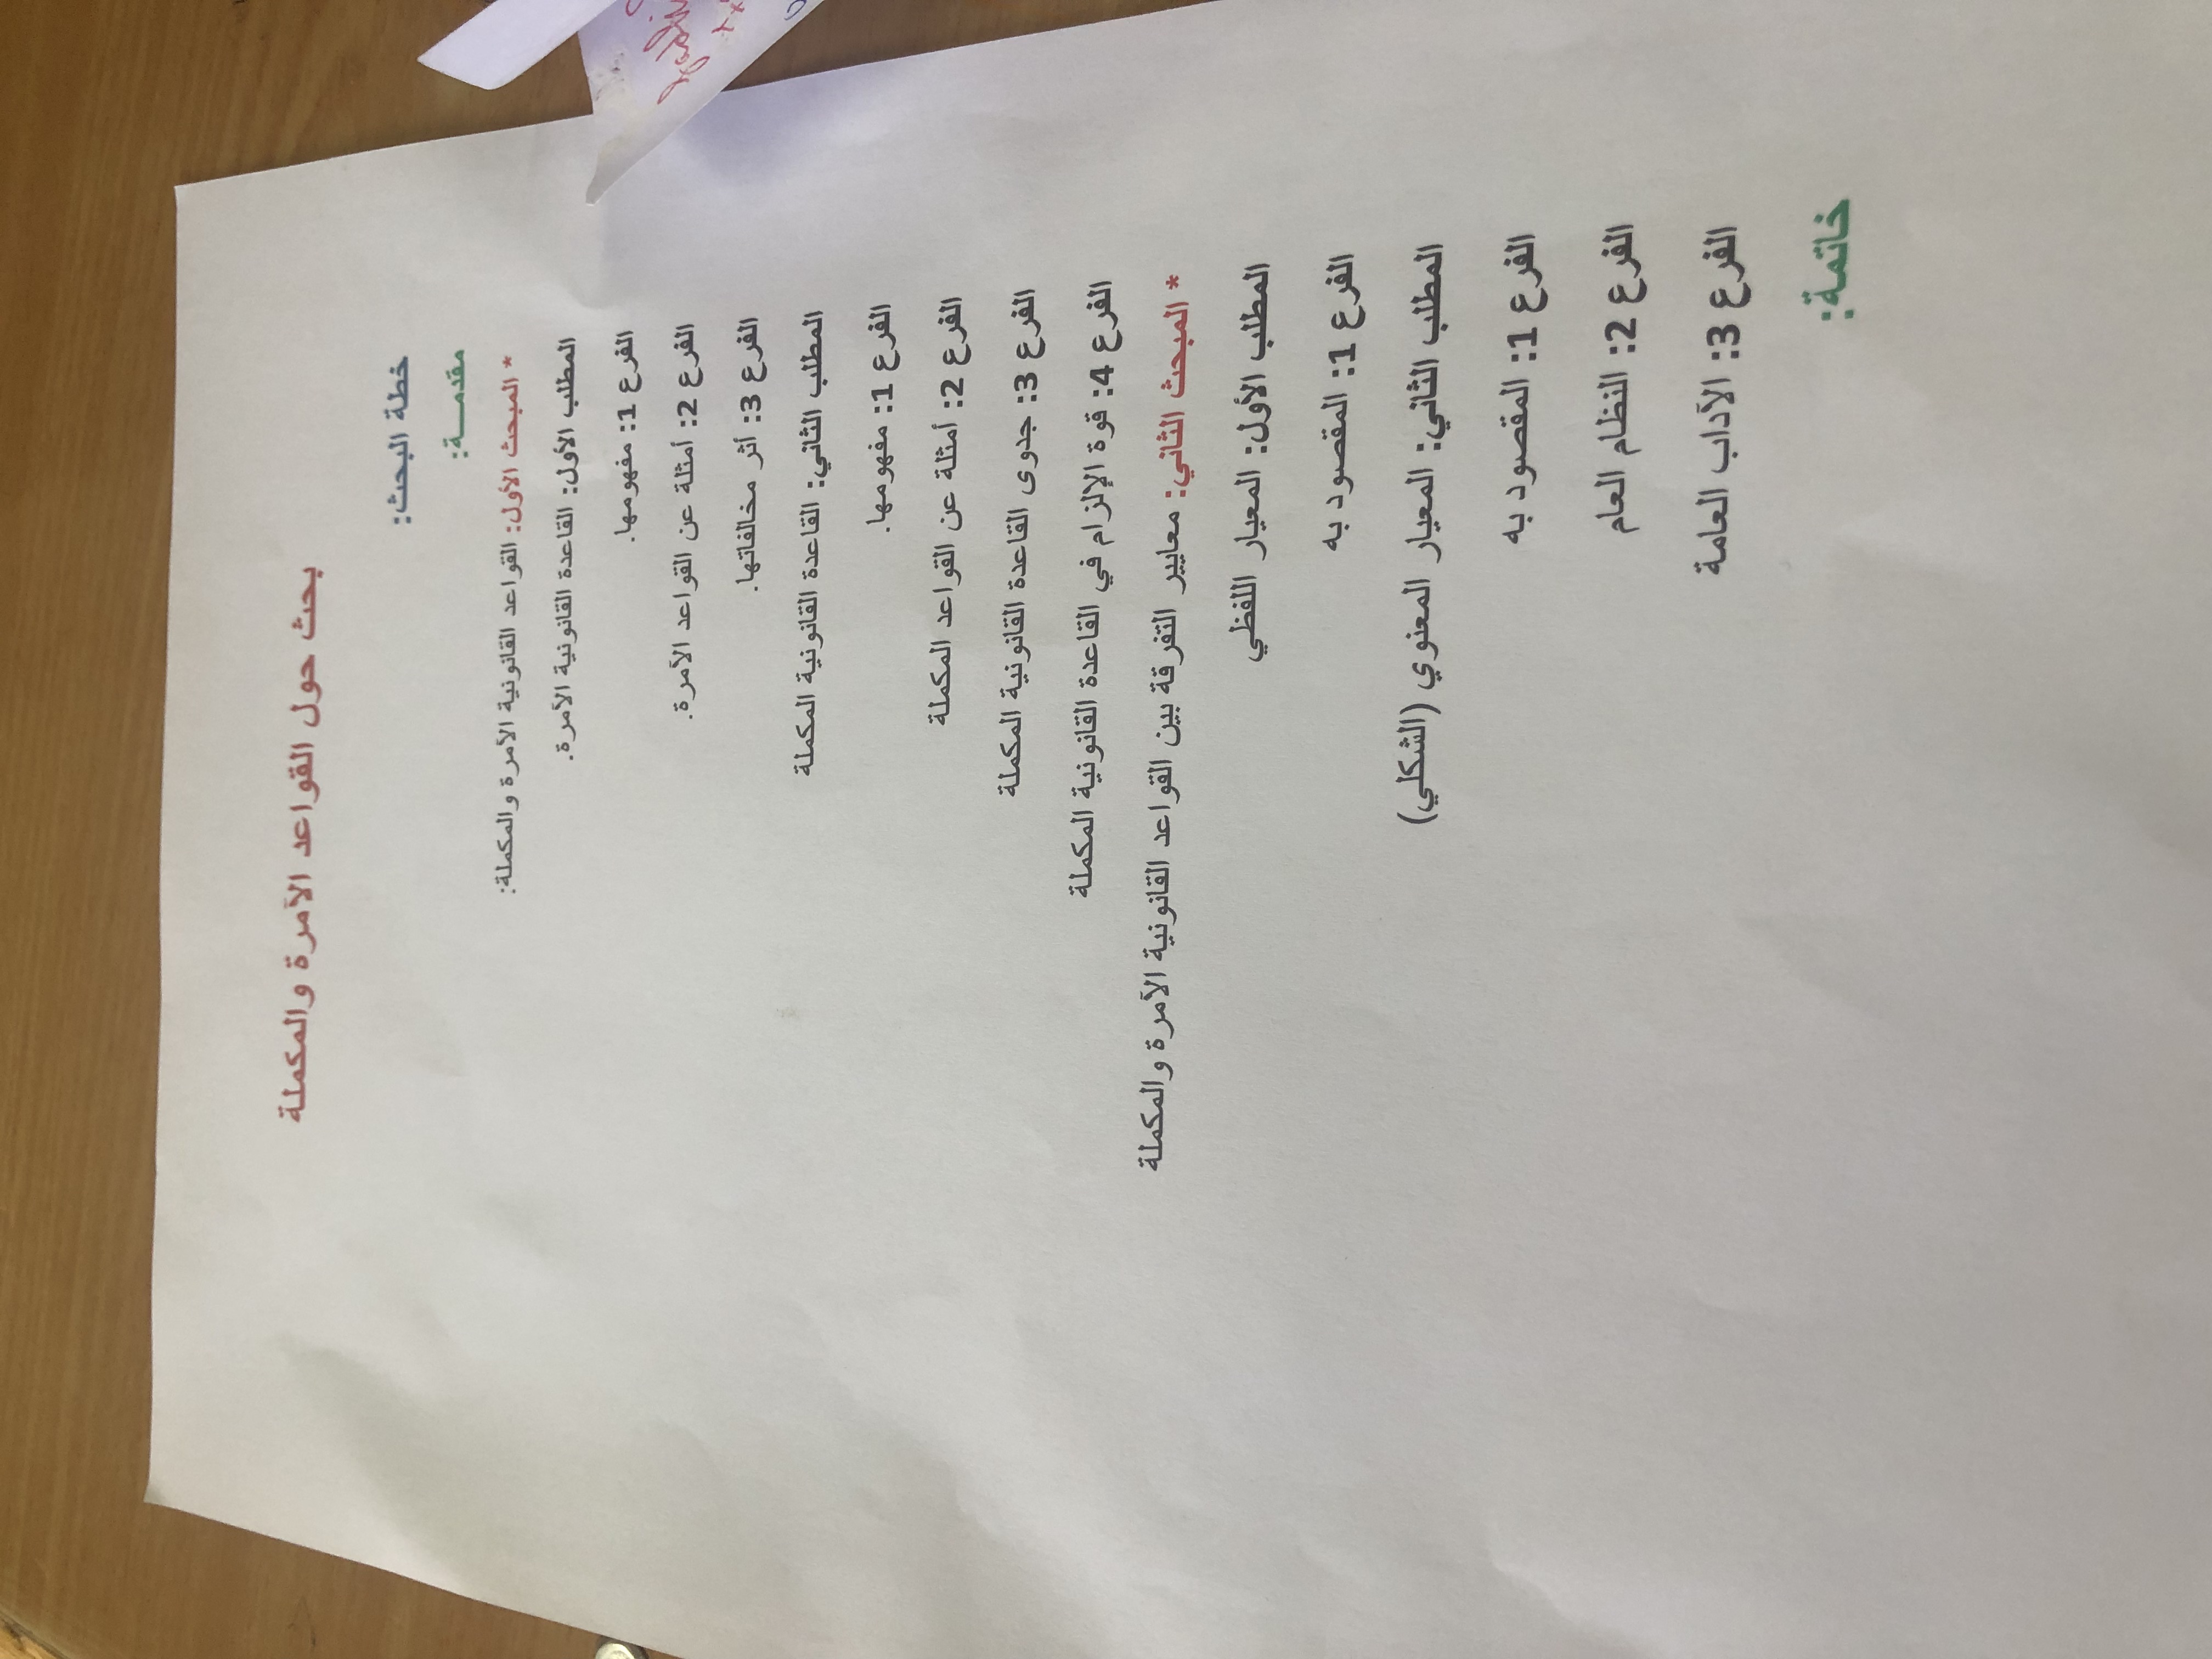 بحث حول القواعد الآمرة والمكملة
خطة البحث:
مقدمـــة:
* المبحث الأول: القواعد القانونية الآمرة والمكملة:
المطلب الأول: القاعدة القانونية الآمرة.
الفرع 1: مفهومها.
الفرع 2: أمثلة عن القواعد الآمرة.
الفرع 3: أثر مخالفاتها.
المطلب الثاني: القاعدة القانونية المكملة
الفرع 1: مفهومها.
الفرع 2: أمثلة عن القواعد المكملة
الفرع 3: جدوى القاعدة القانونية المكملة
الفرع 4: قوة الإلزام في القاعدة القانونية المكملة
* المبحث الثاني: معايير التفرقة بين القواعد القانونية الآمرة والمكملة
المطلب الأول: المعيار اللفظي
الفرع 1: المقصود به
المطلب الثاني: المعيار المعنوي (الشكلي)
الفرع 1: المقصود به
الفرع 2: النظام العام
الفرع 3: الآداب العامة
خاتمة: